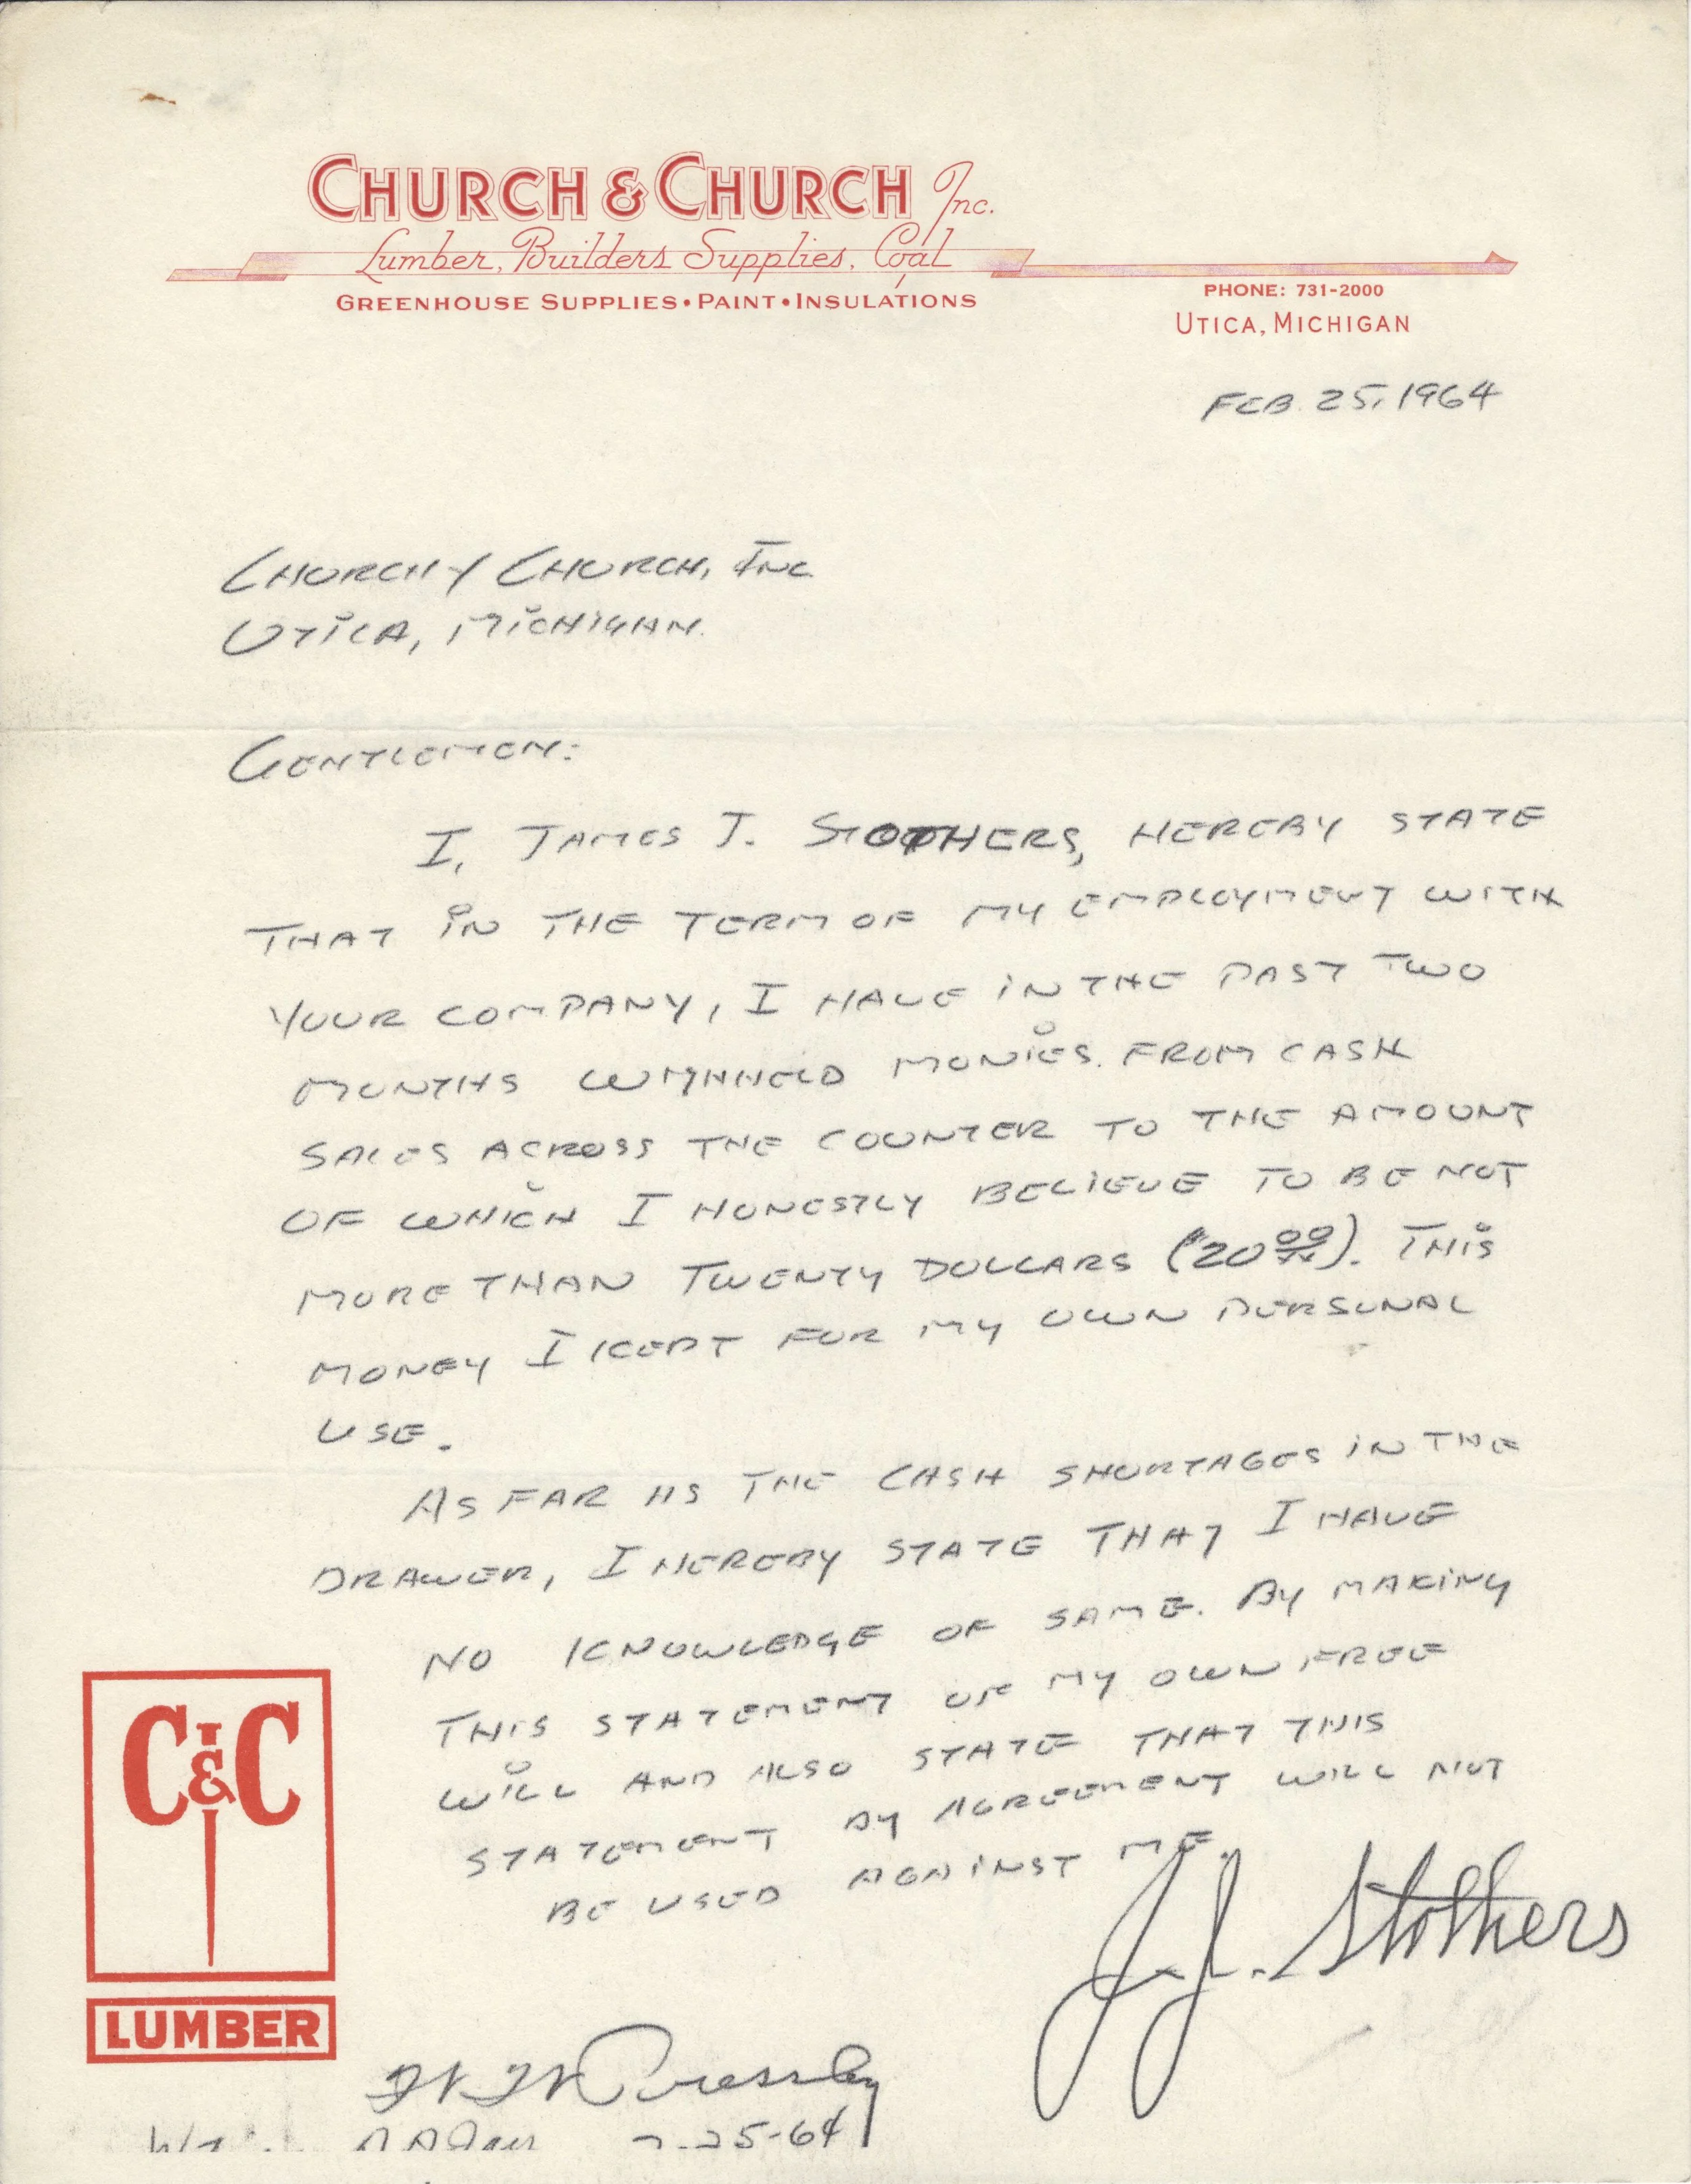 CHURCH & CHURCH Inc.
Lumber, Builders Supplies, Coal
GREENHOUSE SUPPLIES • PAINT • INSULATIONS
PHONE: 731-2000
UTICA, MICHIGAN
FEB. 25, 1964
CHURCH & CHURCH, INC.
UTICA, MICHIGAN.
GENTLEMEN:
I, JAMES J. STOTHERS, HEREBY STATE
THAT IN THE TERM OF MY EMPLOYMENT WITH
YOUR COMPANY, I HAVE IN THE PAST TWO
MONTHS WITHHELD MONIES FROM CASH
SALES ACROSS THE COUNTER TO THE AMOUNT
OF WHICH I HONESTLY BELIEVE TO BE NOT
MORE THAN TWENTY DOLLARS ($20 00/xx). THIS
MONEY I KEPT FOR MY OWN PERSONAL
USE.
AS FAR AS THE CASH SHORTAGES IN THE
DRAWER, I HEREBY STATE THAT I HAVE
NO KNOWLEDGE OF SAME. BY MAKING
THIS STATEMENT OF MY OWN FREE
WILL AND ALSO STATE THAT THIS
STATEMENT BY AGREEMENT WILL NOT
BE USED AGAINST ME.
J.J. Stothers
C&C
LUMBER
Pressley
25-64